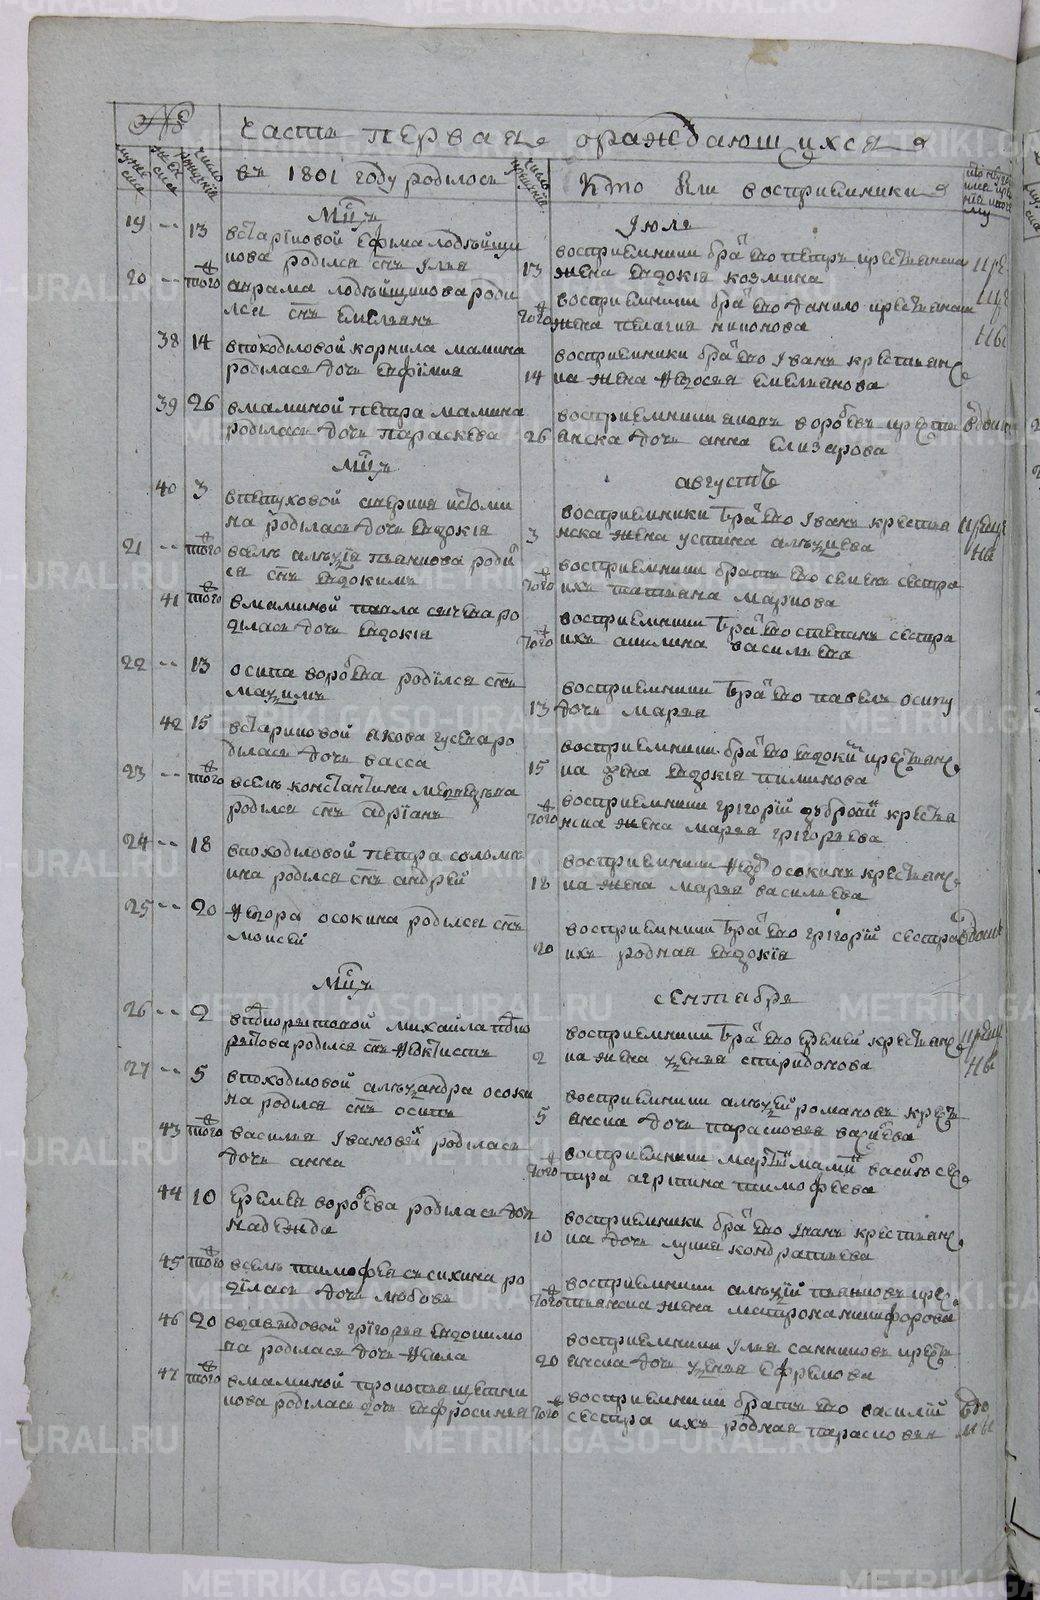 METRIKI.GASO-URAL.RU
№
часть первая о раждающихся
въ 1801 году родилось
Кто были восприемники
Мцъ
Июля
19 -- 13
въ Стариковой Ефима Лобейщи
кова родился снъ Илья
13
восприемники братъ ево Петръ крестьянска
жена Евдокія Козмина
20 -- того
Аврама Лобейщикова роди
лся снъ Емелиянъ
того
восприемники братъ ево Данило крестьянска
жена Пелагия Никонова
38 14
в Походиловой Корнила Мамина
родилась дочь Евфимия
14
восприемники братъ ево Иванъ крестьянс
ка жена Федосья Емельянова
39 26
в Маминой Петра Мамина
родилась дочь Параскева
26
восприемники Яковъ Воробьевъ крестья
нска дочь Анна Елизарова
Мцъ
августъ
40 3
в Петуховой Аверкия Истоми
на родилась дочь Евдокія
3
восприемники братъ ево Иванъ крестья
нска жена Устина Алексиева
21 -- того
в селе Алексія Пьянкова роди
лся снъ Евдокимъ
того
восприемники братъ ево Семенъ сестра
ихъ Татьяна Маркова
41 того
в Маминой Павла Сычева ро
дилась дочь Евдокія
того
восприемники братъ ево Степанъ сестра
ихъ Акилина Васильева
22 -- 13
Осипа Воробьева родился снъ
Максимъ
13
восприемники братъ ево Павелъ Осипу
дочь Марья
42 15
въ Стариковой Якова Гусева ро
дилась дочь Васса
15
восприемники братъ ево Евдокимъ крестьянс
ка жена Евдокія Пименова
23 -- того
в селе Константина Медведева
родился снъ Адриянъ
того
восприемники Григорій крестья
нска жена Марья Григорьева
24 -- 18
в Походиловой Петра Соломе
ина родился снъ Андрей
18
восприемники Осокинъ крестьянс
ка жена Марья Васильева
25 -- 20
Федора Осокина родился снъ
Моисей
20
восприемники братъ ево Григорій сестра
ихъ родная Евдокія
Мцъ
сентября
26 -- 2
Михайла
родился снъ Феоктистъ
2
восприемники братъ ево Еремей крестьянс
ка жена Ксенья Спиридонова
27 -- 5
в Походиловой Александра Осоки
на родился снъ Осипъ
5
восприемники Алексей Романовъ кресть
янска дочь Парасковья
43 того
Василья Ивановыхъ родилась
дочь Анна
того
восприемники сес
тра Агрипина Тимофеева
44 10
Еремея Воробьева родилась дочь
Надежда
10
восприемники братъ ево Иванъ крестьянс
ка дочь Лукия Кондратьева
45 того
в селе Тимофея Сысихина ро
дилась дочь Любовь
того
восприемники Алексій Пьянковъ крес
тьянска жена Матрона Никифорова
46 20
в Давыдовой Григорья Евдокимо
ва родилась дочь Фекла
20
восприемники Илья Санниковъ кресть
янска дочь Ксенья Ефремова
47 того
в Маминой Прокопья Щетни
кова родилась дочь Евфросинья
того
восприемники братъ ево Василій
сестра ихъ родная Парасковья